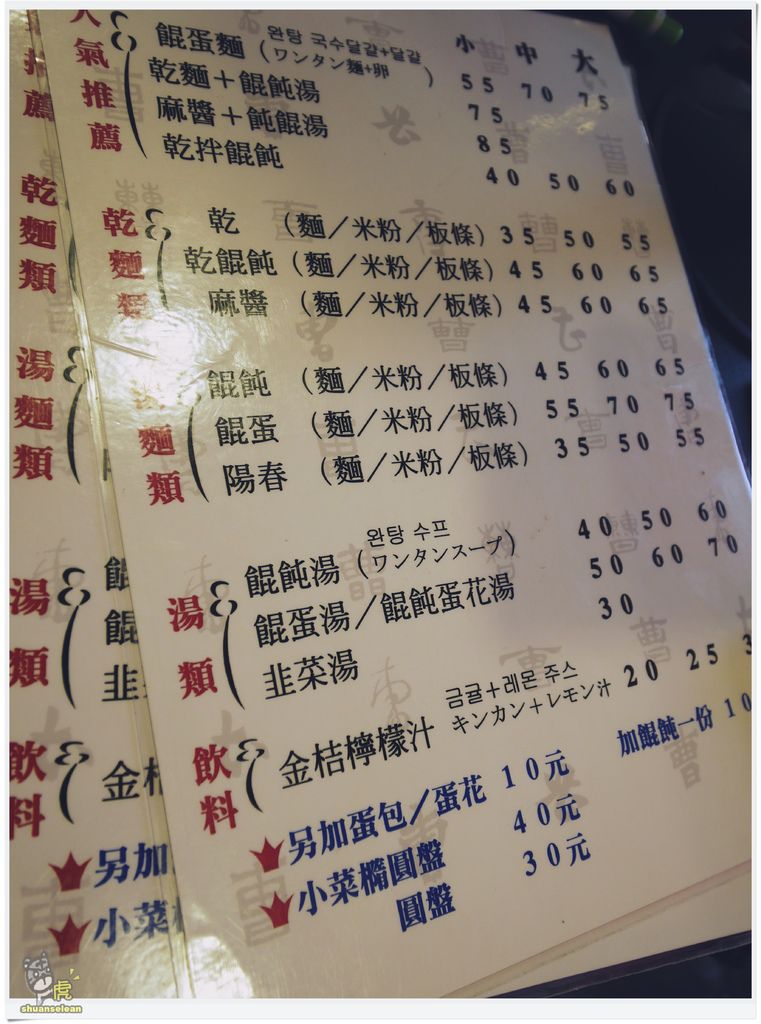 人氣推薦
小 中 大
餛蛋麵 (완탕 국수달걀+달걀 ワンタン麵+卵) 55 70 75
乾麵+餛飩湯 75
麻醬+飩餛湯 85
乾拌餛飩 40 50 60
乾麵類
乾 (麵/米粉/板條) 35 50 55
乾餛飩 (麵/米粉/板條) 45 60 65
麻醬 (麵/米粉/板條) 45 60 65
湯麵類
餛飩 (麵/米粉/板條) 45 60 65
餛蛋 (麵/米粉/板條) 55 70 75
陽春 (麵/米粉/板條) 35 50 55
湯類
餛飩湯 (완탕 수프 ワンタンスープ) 40 50 60
餛蛋湯/餛飩蛋花湯 50 60 70
韭菜湯 30
飲料
金桔檸檬汁 금귤+레몬 주스 キンカン+レモン汁 20 25 3
加餛飩一份 10
另加蛋包/蛋花 10元
小菜橢圓盤 40元
圓盤 30元
推薦
乾麵類
湯麵類
湯類
餛
餛
韭
飲料
金
另加
小菜
虎
shuanselean